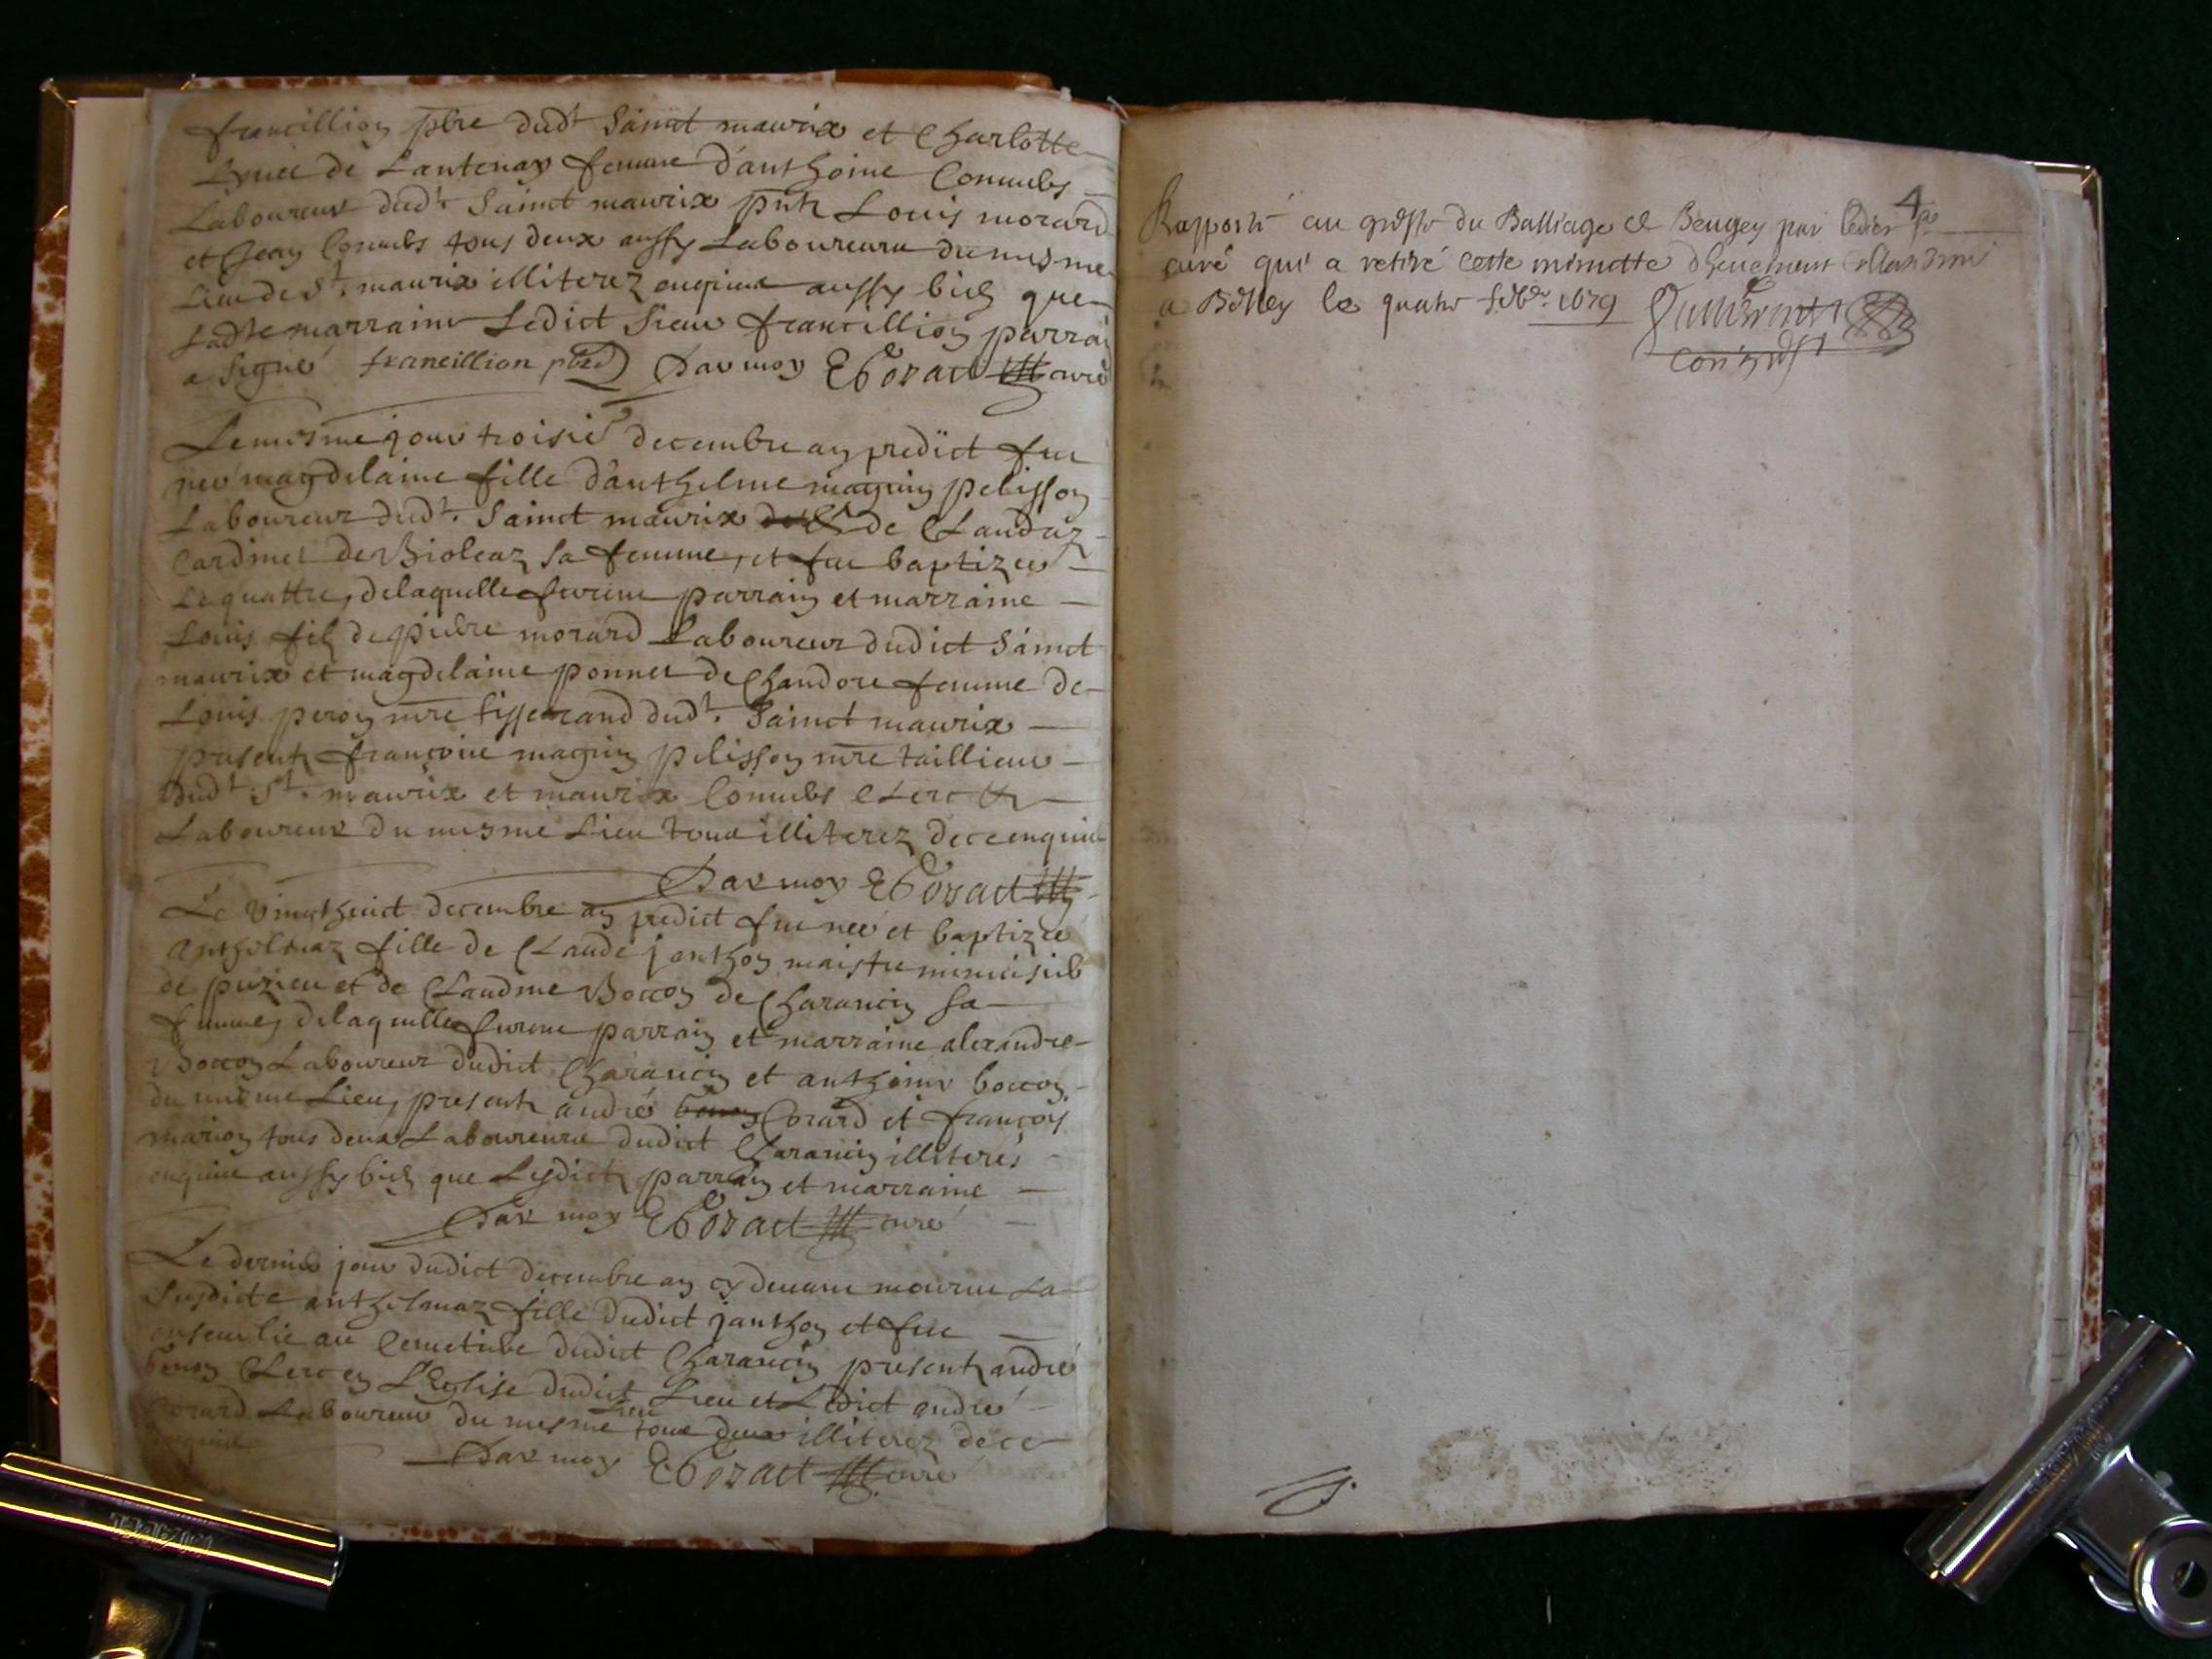 francillion pbre dudt Sainct maurix et Charlotte
de Lantenay femme d'anthoine Connubs
Laboureur dudt. Sainct maurix pnts Louis morard
et Jean Connubs tous deux aussy Laboureurs du mesme
Lieu de St. maurix illiterez enquis aussy bien que
Ladte marraine Ledict Sieur francillion parrain
a signé francillion pbre Par moy curé
Le mesme jour troisie decembre an predict fut
née magdelaine fille d'anthelme magnin pelisson
Laboureur dudt. Sainct maurix de Claudaz
Cardinet de Violeaz sa femme, et fut baptizee
Le quattre, delaquelle furent parrain et marraine
Louis filz de pierre morard Laboureur dudict Sainct
maurix et magdelaine ponnet de Chandore femme de
Louis peron mre tisserand dudt. Sainct maurix
presents françois magnin pelisson mre taillieur
dudt. St. maurix et maurix Connubs Clerc &
Laboureur du mesme Lieu tous illiterez de ce enquis
Par moy
Le vingthuict decembre an predict fut neé et baptizeé
Anthelmaz fille de Claude janthon maistre
de puzieu et de Claudine Boccon de Charancin sa
femme, delaquelle furent parrain et marraine alexandre
Boccon Laboureur dudict Charancin et anthoine boccon
du mesme Lieu, presents andré Corard et françois
marion tous deux Laboureurs dudict Charancin illiterés
enquis aussy bien que Lesdicts parrain et marraine
Par moy curé
Le dernier jour dudict decembre an cy devant mourut La
susdicte anthelmaz fille dudict janthon et fut
ensevelie au Cemetiere dudict Charancin presents andré
benon Clerc en L'Eglise dudict Lieu et Ledict andré
Corard Laboureur du mesme Lieu tous deux illiterez de ce
enquis
Par moy curé
4
Rapporté au greffe du Balliage de Beugey par ledict sr
curé qui a retiré cette minutte dheuement
a Belley le quatre febr. 1679